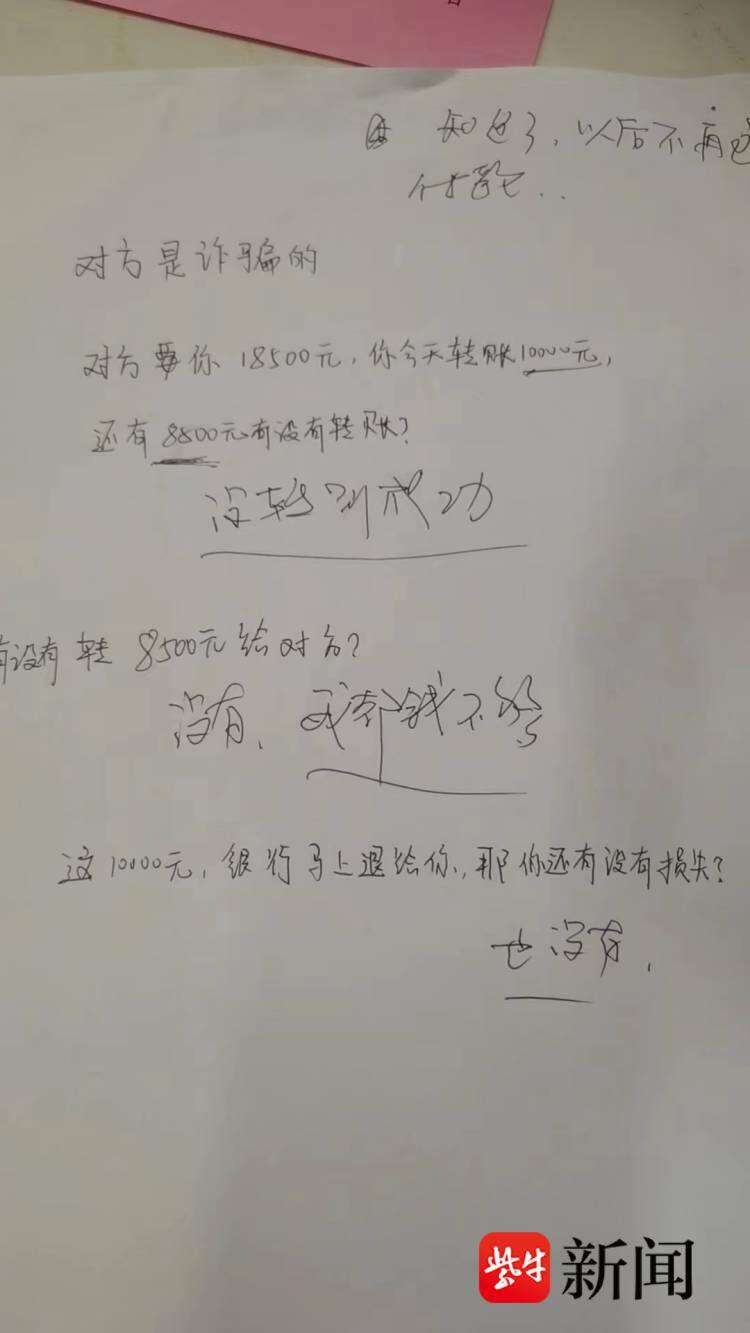 知道了，以后不再
对方是诈骗的
对方要你 18500元，你今天转账10000元，
还有8500元有没有转账？
没转 成功
有没有转 8500元给对方？
没有、我都钱不够
这10000元，银行马上退给你，那你还有没有损失？
也没有，
紫牛 新闻